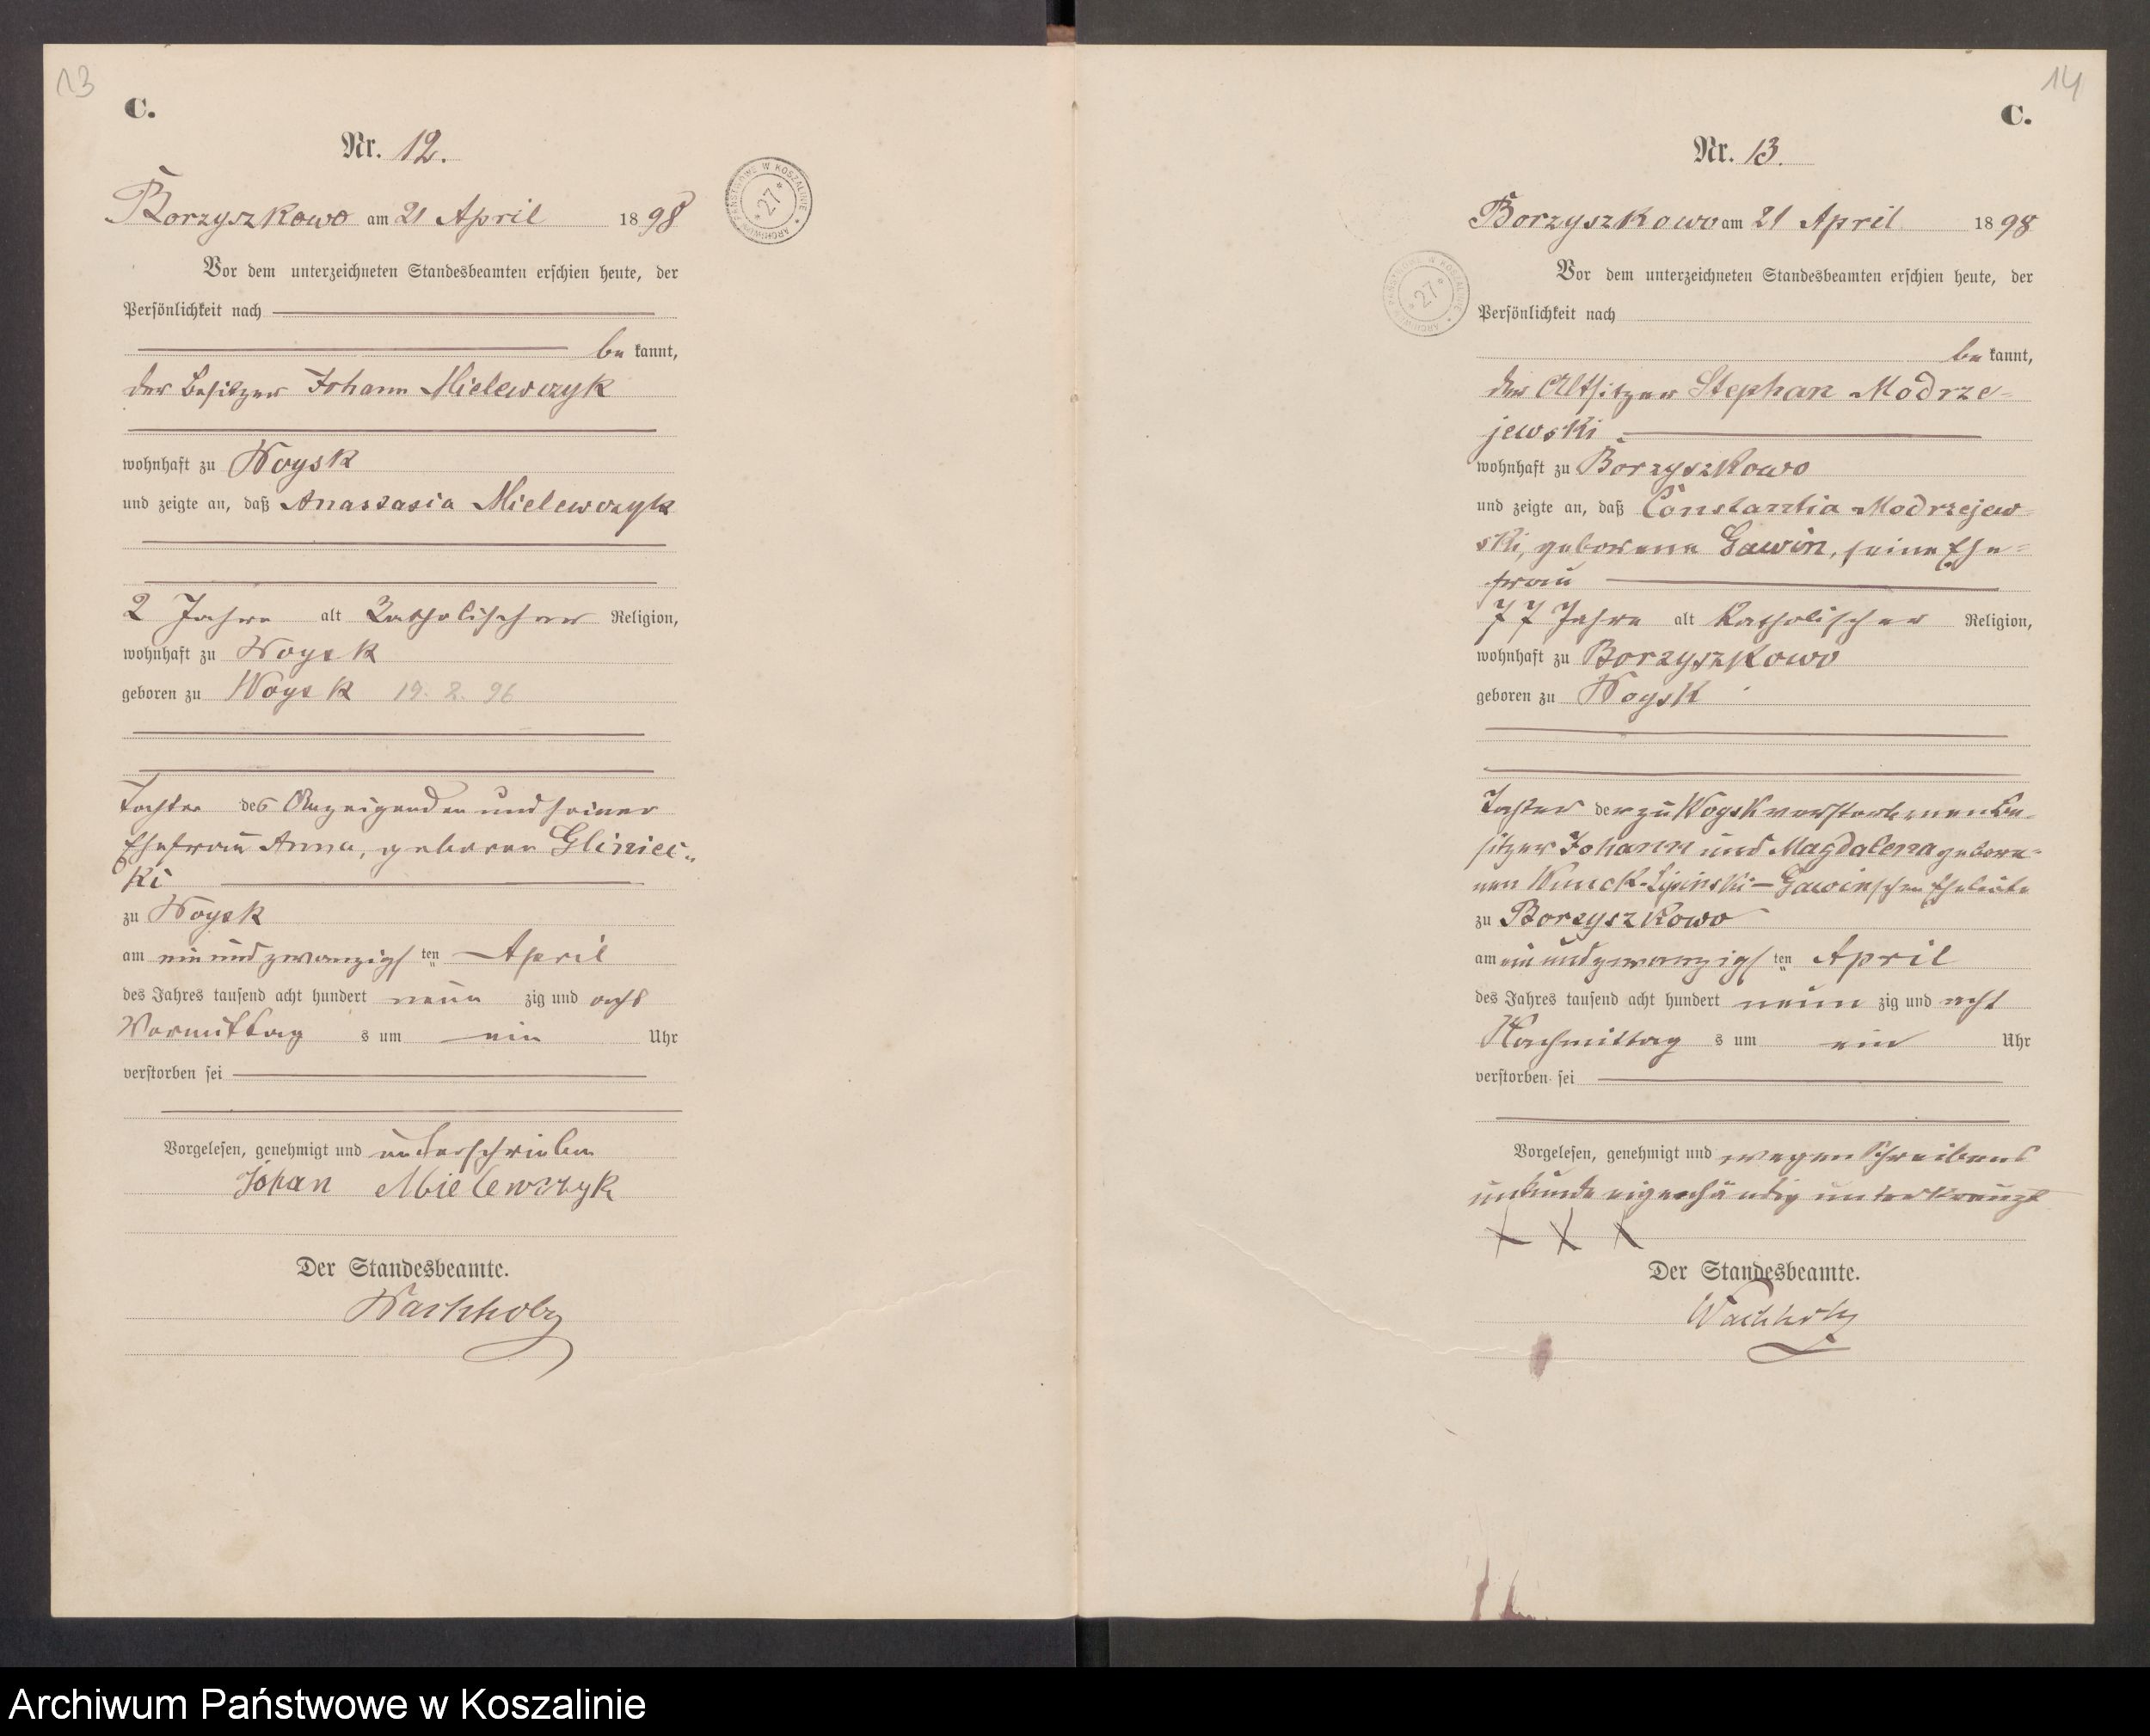 13
C.
Nr. 12.
Borzyszkowo am 21 April 1898
Vor dem unterzeichneten Standesbeamten erschien heute, der
Persönlichkeit nach
be kannt,
der Besitzer Johann Mielewczyk
wohnhaft zu Woysk
und zeigte an, daß Anastasia Mielewczyk
2 Jahre alt katholischer Religion,
wohnhaft zu Woysk
geboren zu Woysk 19. 2. 96
Tochter des Anzeigenden und seiner
Ehefrau Anna, geborenen Gliniec-
ki
zu Woysk
am ein und zwanzigsten April
des Jahres tausend acht hundert neun zig und acht
Vormittag s um ein Uhr
verstorben sei
Vorgelesen, genehmigt und unterschrieben
Johan Mielewczyk
Der Standesbeamte.
Wachholz
ARCHIWUM PAŃSTWOWE W KOSZALINIE * 27 *
14
C.
Nr. 13.
Borzyszkowo am 21 April 1898
Vor dem unterzeichneten Standesbeamten erschien heute, der
Persönlichkeit nach
be kannt,
der Altsitzer Stephan Modrze-
jewski
wohnhaft zu Borzyszkowo
und zeigte an, daß Constantia Modrzejew-
ski, geborene Gawin, seine Ehe-
frau
77 Jahre alt katholischer Religion,
wohnhaft zu Borzyszkowo
geboren zu Woysk
Tochter der zu Woysk verstorbenen Be-
sitzer Johann und Magdalena gebore-
nen Wnuck-Lipinski-Gawinschen Eheleute
zu Borzyszkowo
am ein und zwanzigsten April
des Jahres tausend acht hundert neun zig und acht
Nachmittag s um ein Uhr
verstorben sei
Vorgelesen, genehmigt und wegen Schreibens
unkunde eigenhändig unterkreuzt
X X X
Der Standesbeamte.
Wachholz
ARCHIWUM PAŃSTWOWE W KOSZALINIE * 27 *
Archiwum Państwowe w Koszalinie